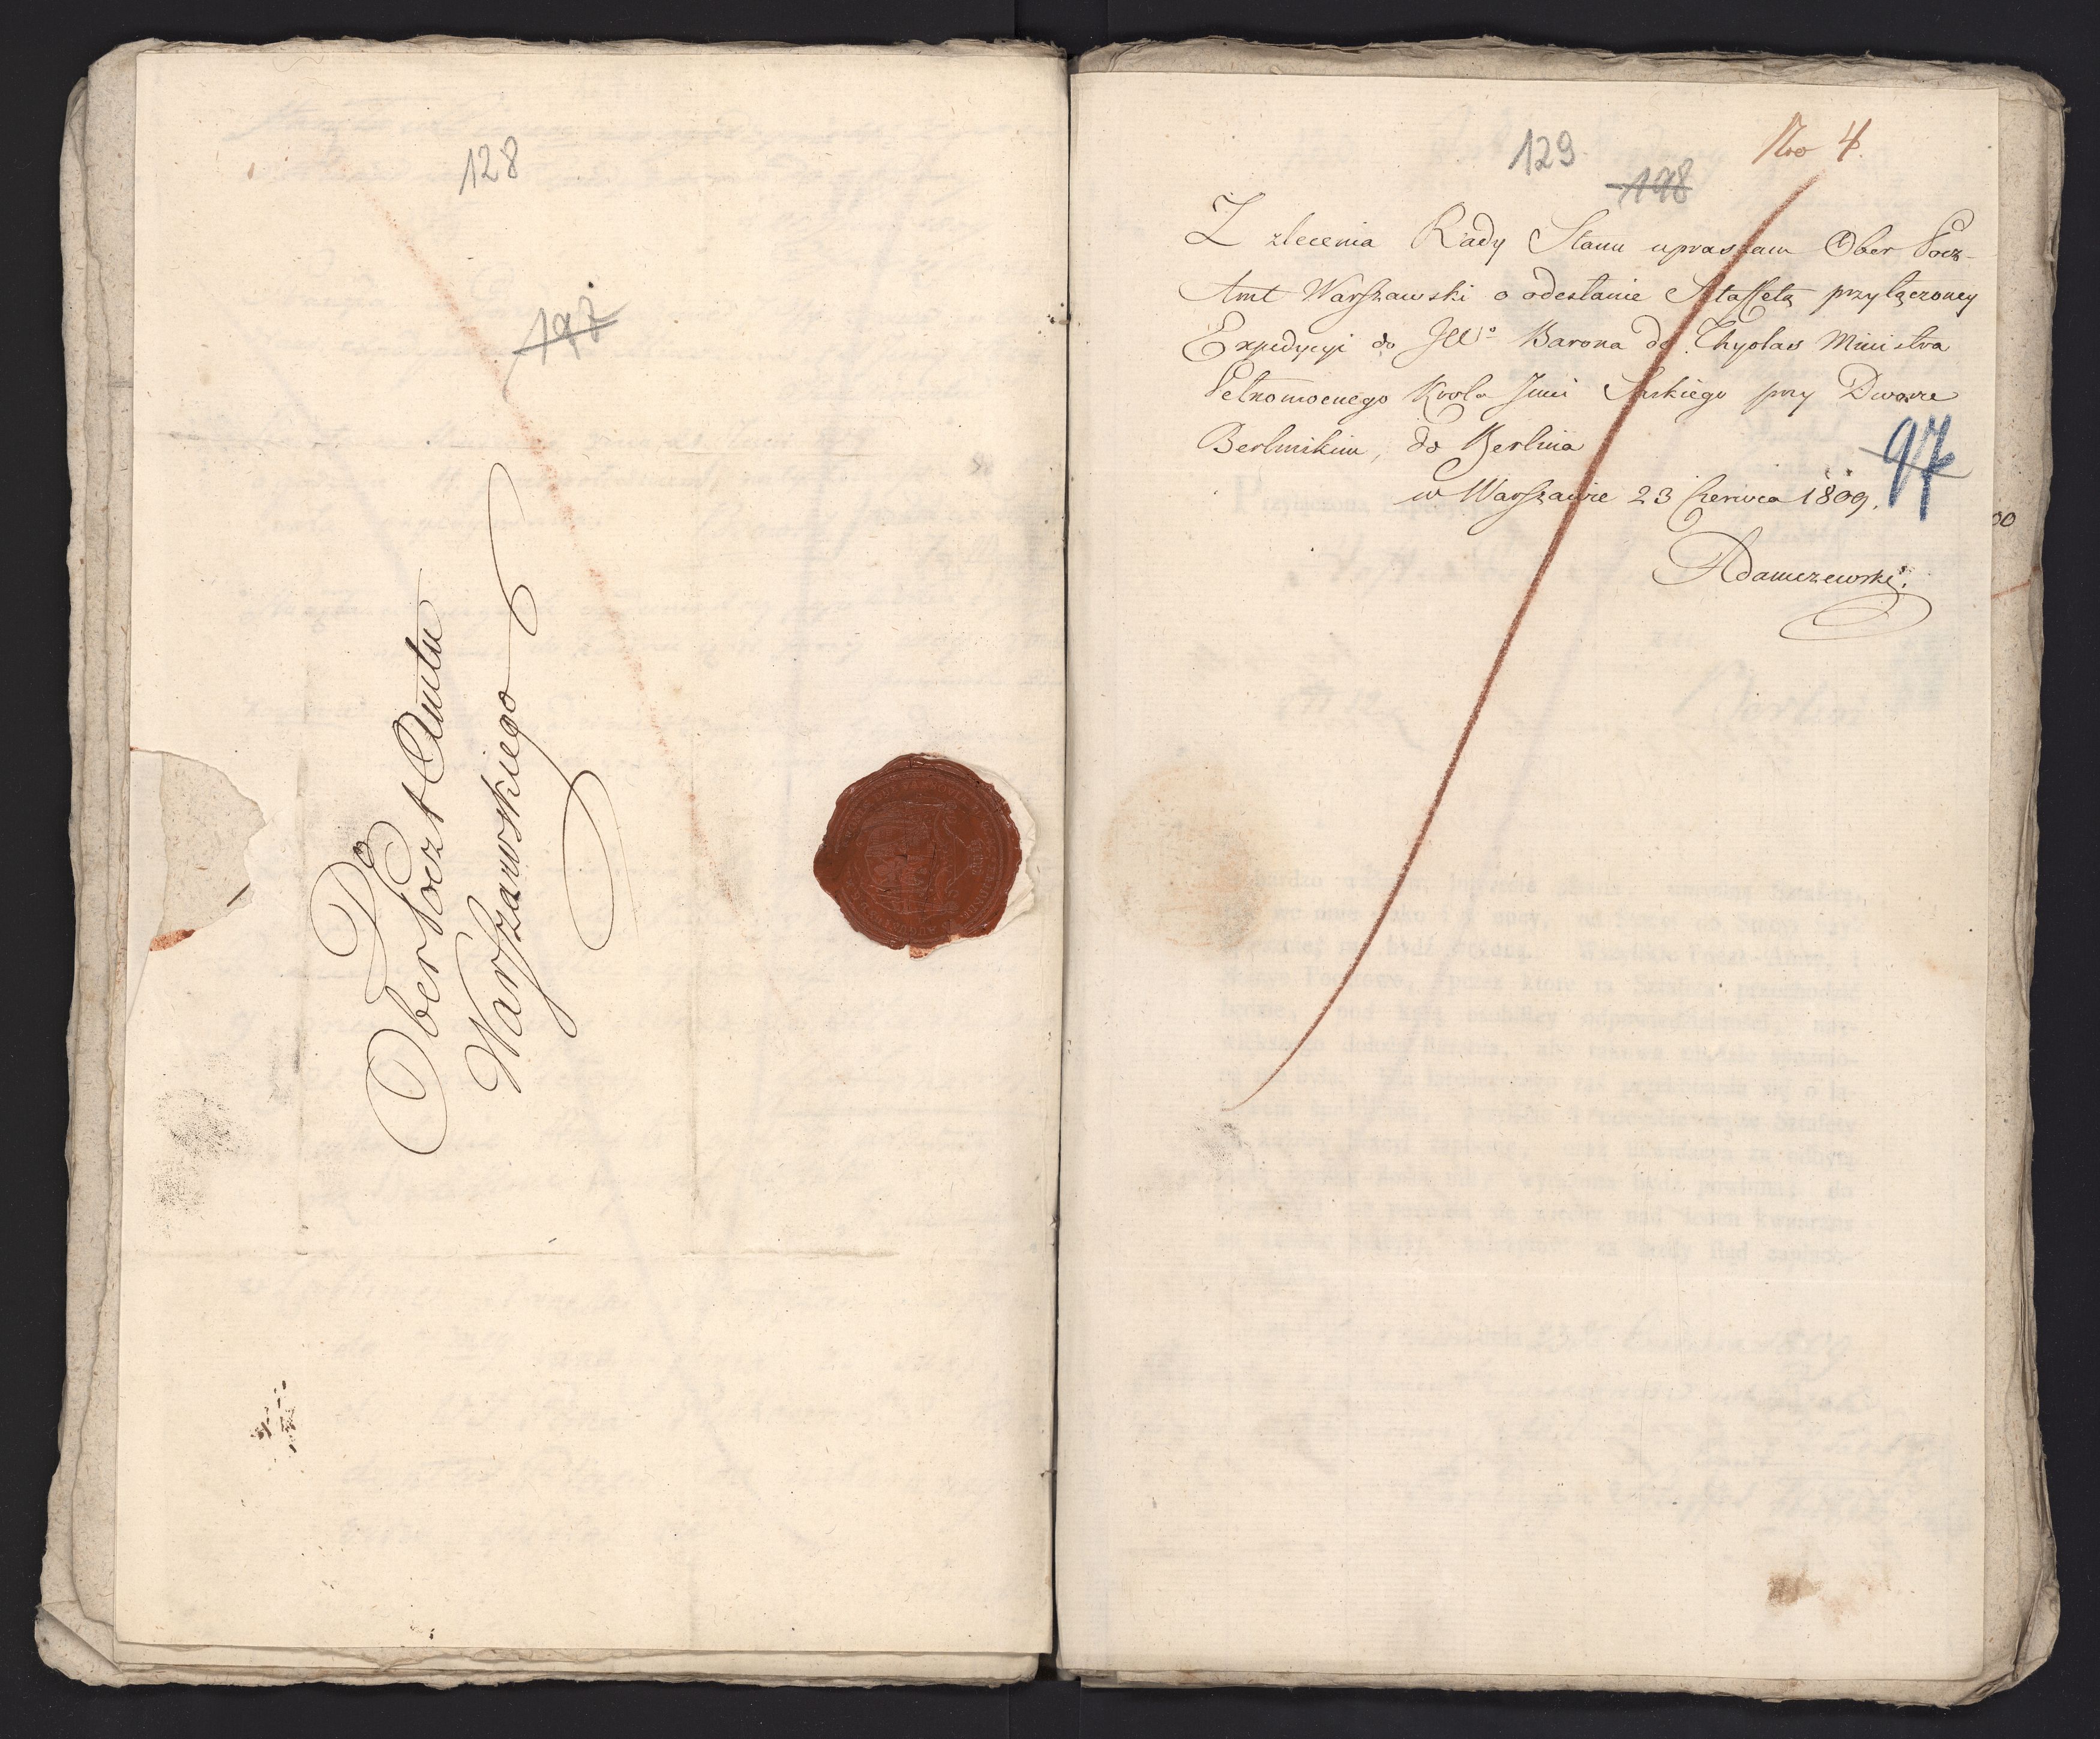 128
197
Do
Ober Poczt Amtu
Warszawskiego
129
Nro 4.
198
Z zlecenia Rady Stanu upraszam Ober Pocz-
Amt Warszawski o odesłanie Sztaffetą przyłączoney
Expedycyi do JW° Barona de Thyolas Ministra
Pełnomocnego Krola Jmci Saskiego przy Dworze
Berlinskim, do Berlina
97
w Warszawie 23 Czerwca 1809.
Adamczewski.